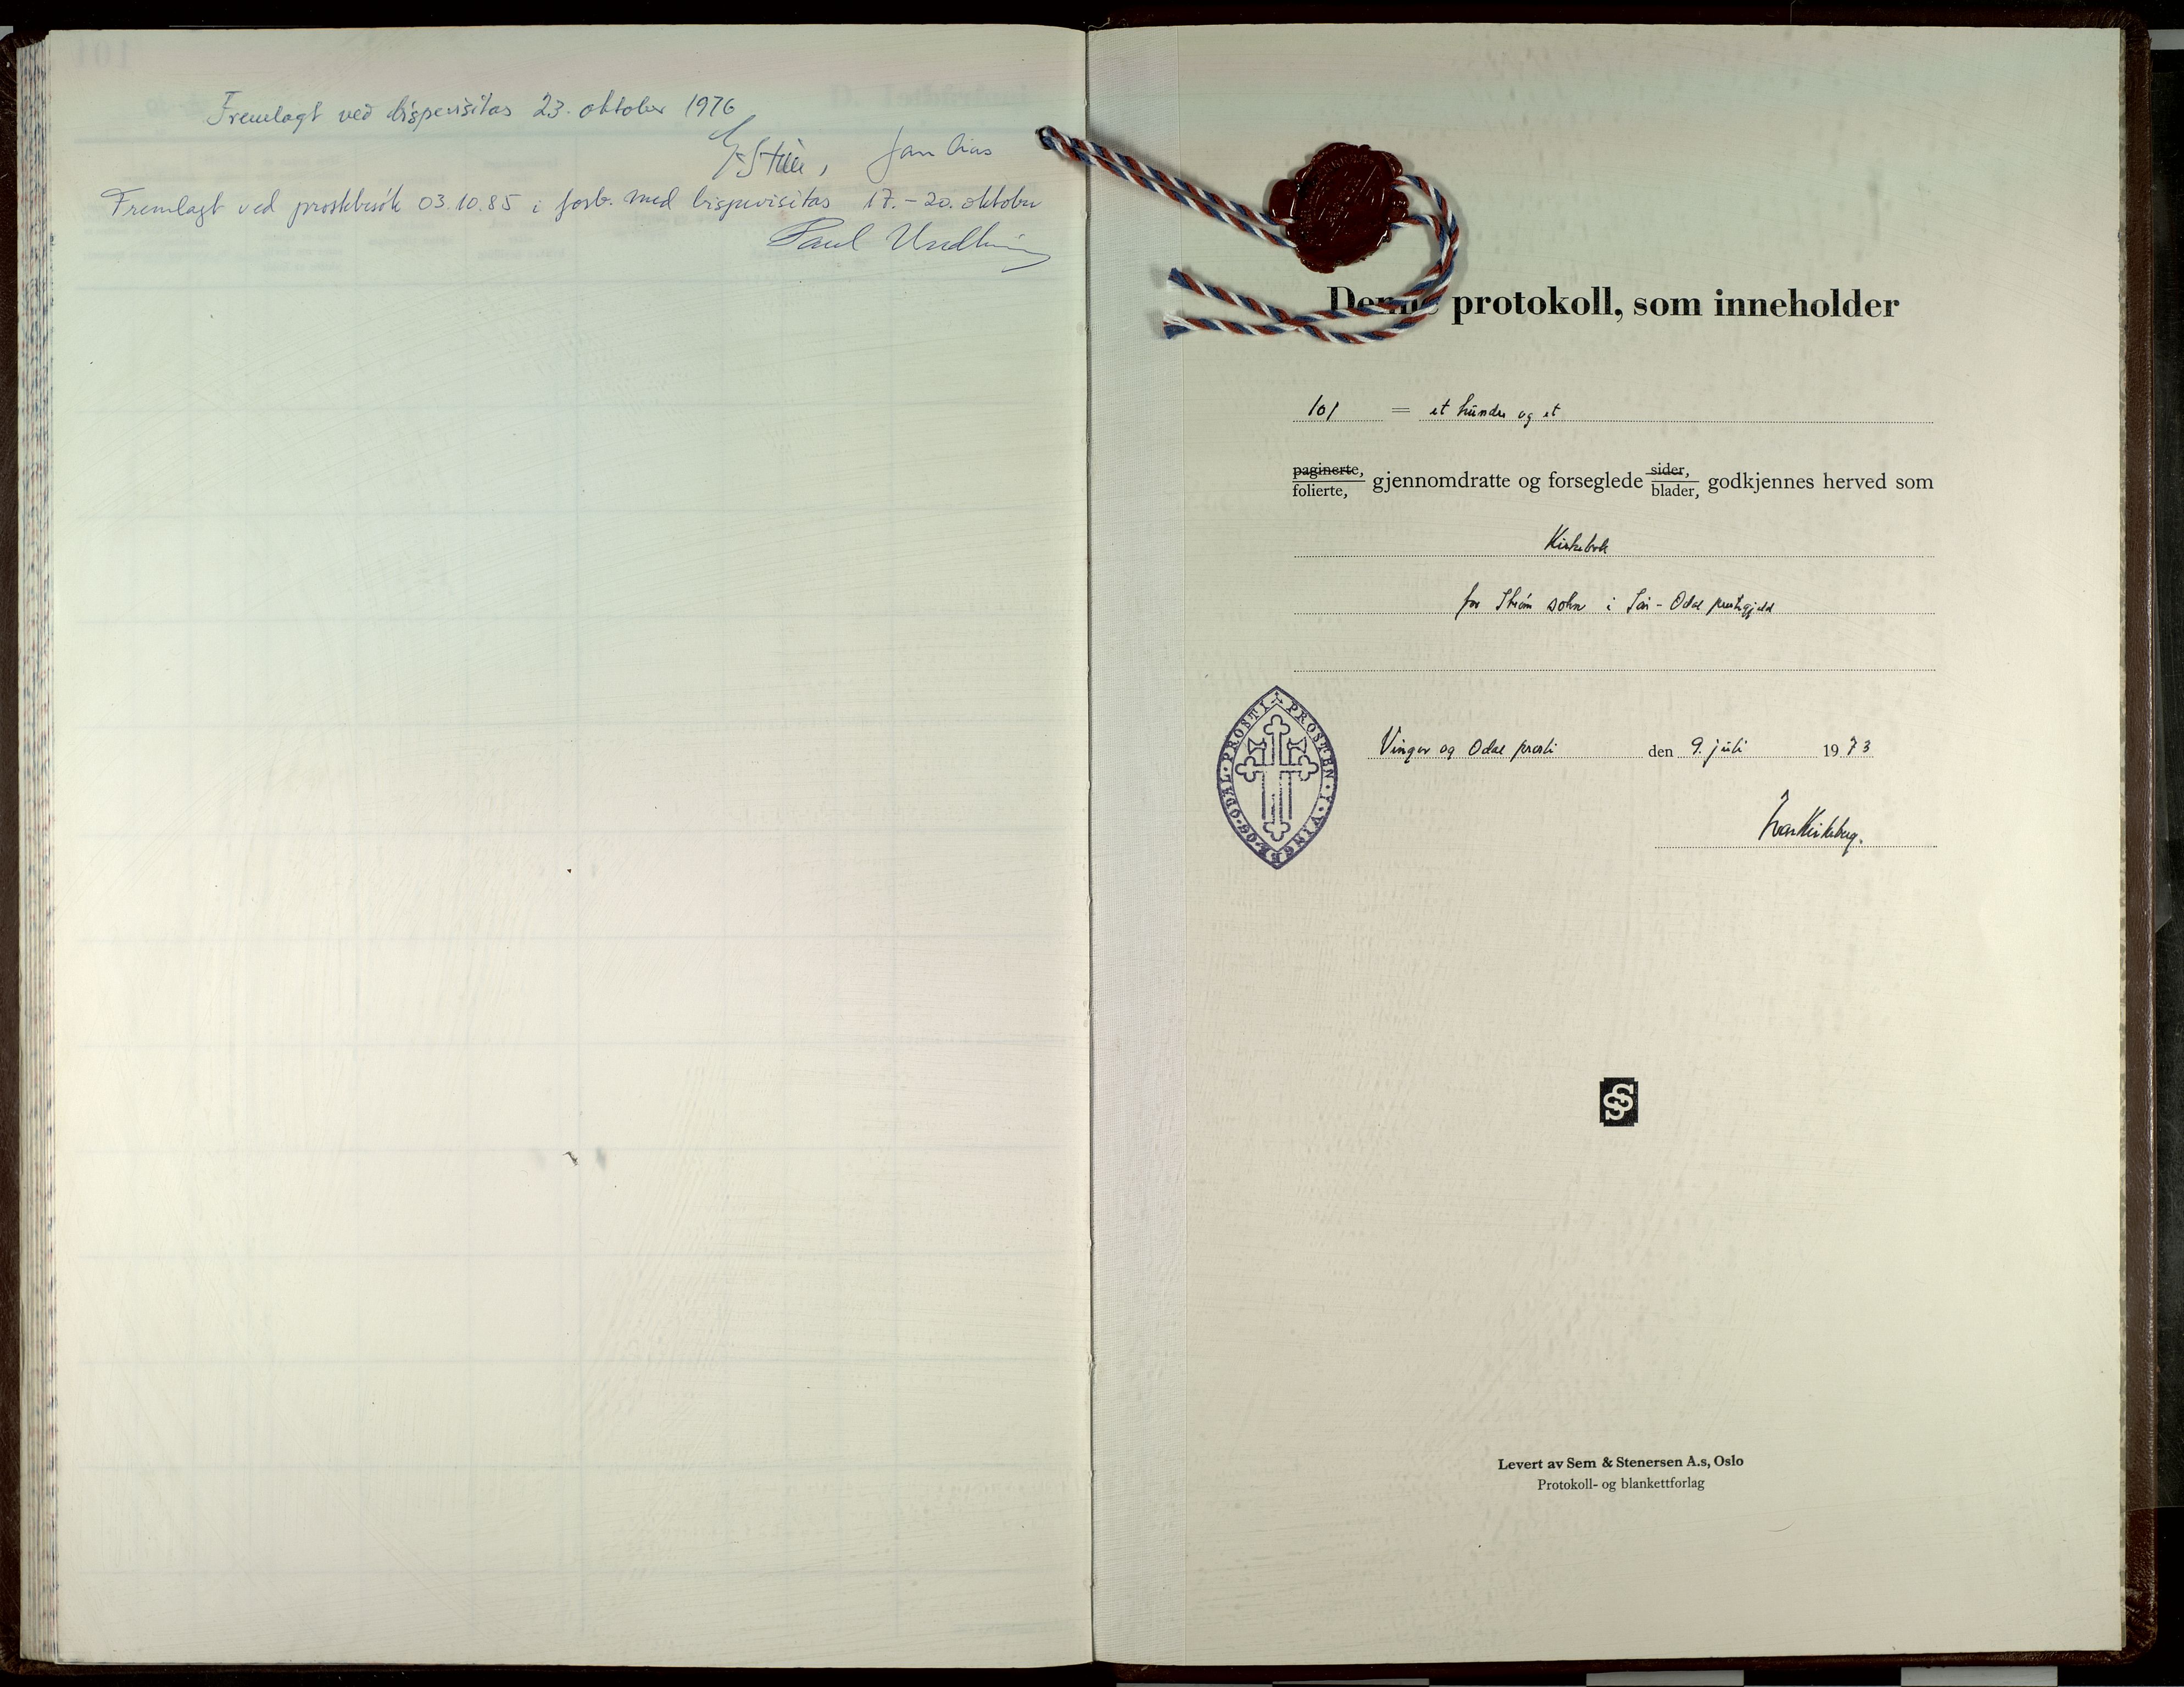 Fremlagt ved bispevisitas 23. oktober 1976
Fremlagt ved prostebesøk 03.10.85 i forb. med bispevisitas 17.-20. oktober
Paul
Denne protokoll, som inneholder
101 = et hundre og et
paginerte,
folierte, gjennomdratte og forseglede sider,
blader, godkjennes herved som
Kirkebok
for Strøm sokn i Sør-Odal prestegjeld
PROSTEN·I·VINGER·OG·ODAL·PROSTI
Vinger og Odal prosti den 9. juli 1973
Ivar Kirkeberg.
SS
Levert av Sem & Stenersen A.s, Oslo
Protokoll- og blankettforlag